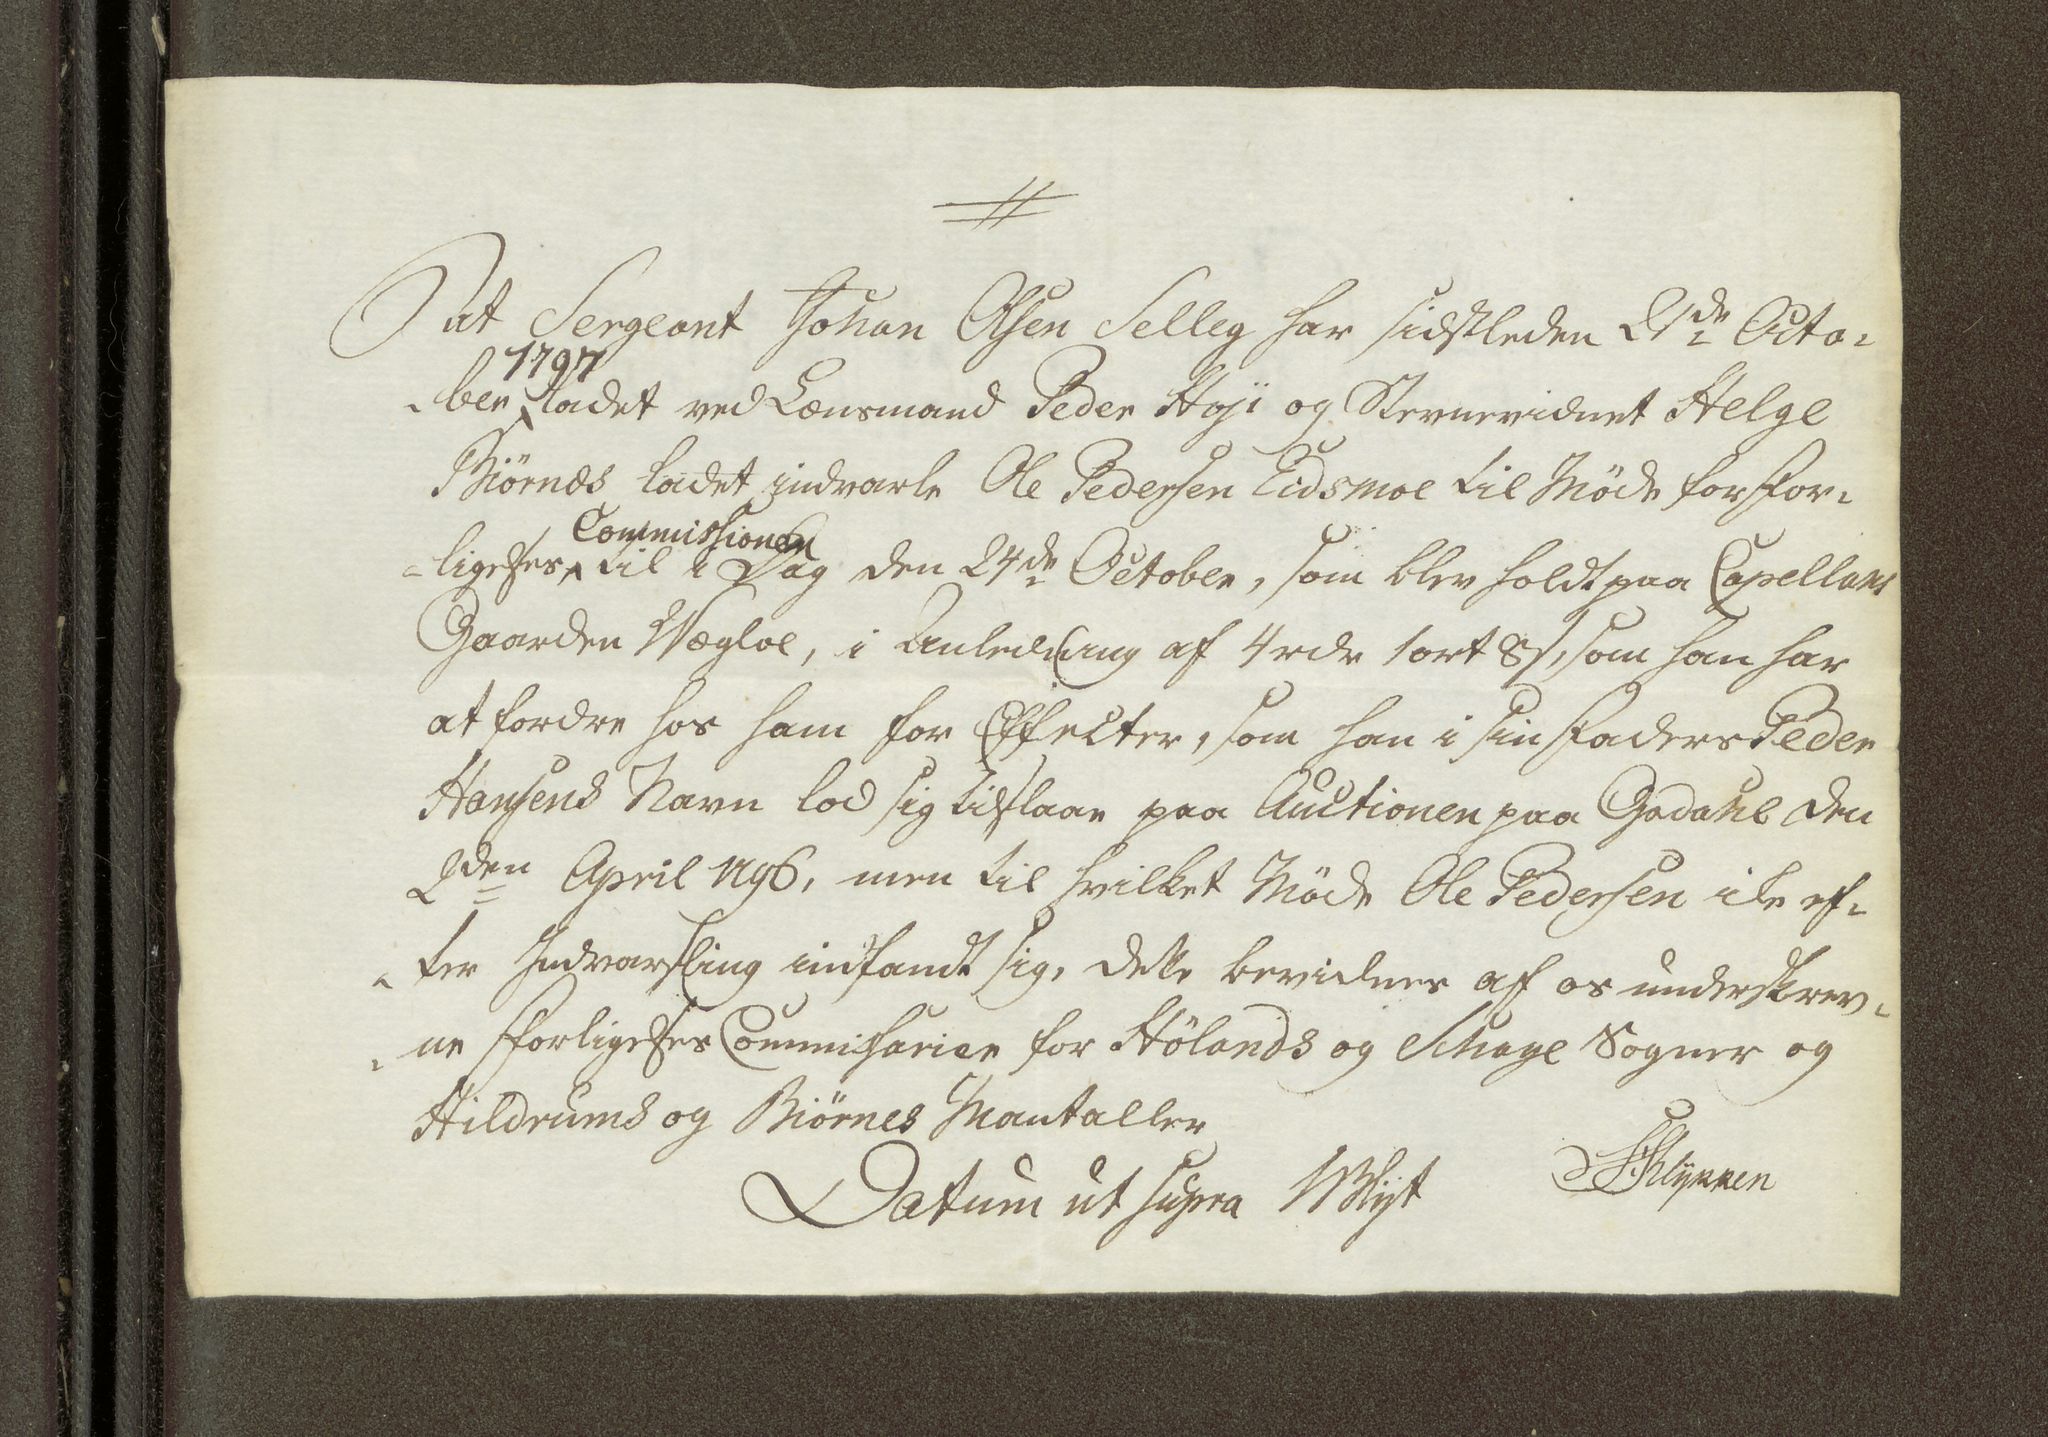 At Sergeant Johan Olsen Selleg har sidstleden 2de Octo-
-ber 1797 ladet ved Lensmand Peder Høji og Stevnevidnet Helge
Biörnes ladet indvarle Ole Pedersen Eidsmoe til Møde for For-
-ligelses Commissionen til i Dag den 24de October, som blev holdt paa Capellans
Gaarden Wægloe, i Anledning af 4 rdr 1 ort 8 s, som han har
at fordre hos ham for Effecter, som han i sin Faders Peder
Hansens Navn lod sig tilslaae paa Auctionen paa Gadahl den
2den April 1796, men til hvilket Møde Ole Pedersen ike ef-
-ter Indvarsling indfandt sig, dette bevidner af os underskrev-
-ne Forligelses Commissarier for Hölands og Schage Sogner og
Hildrums og Biörnes Mantaller
Datum ut supra